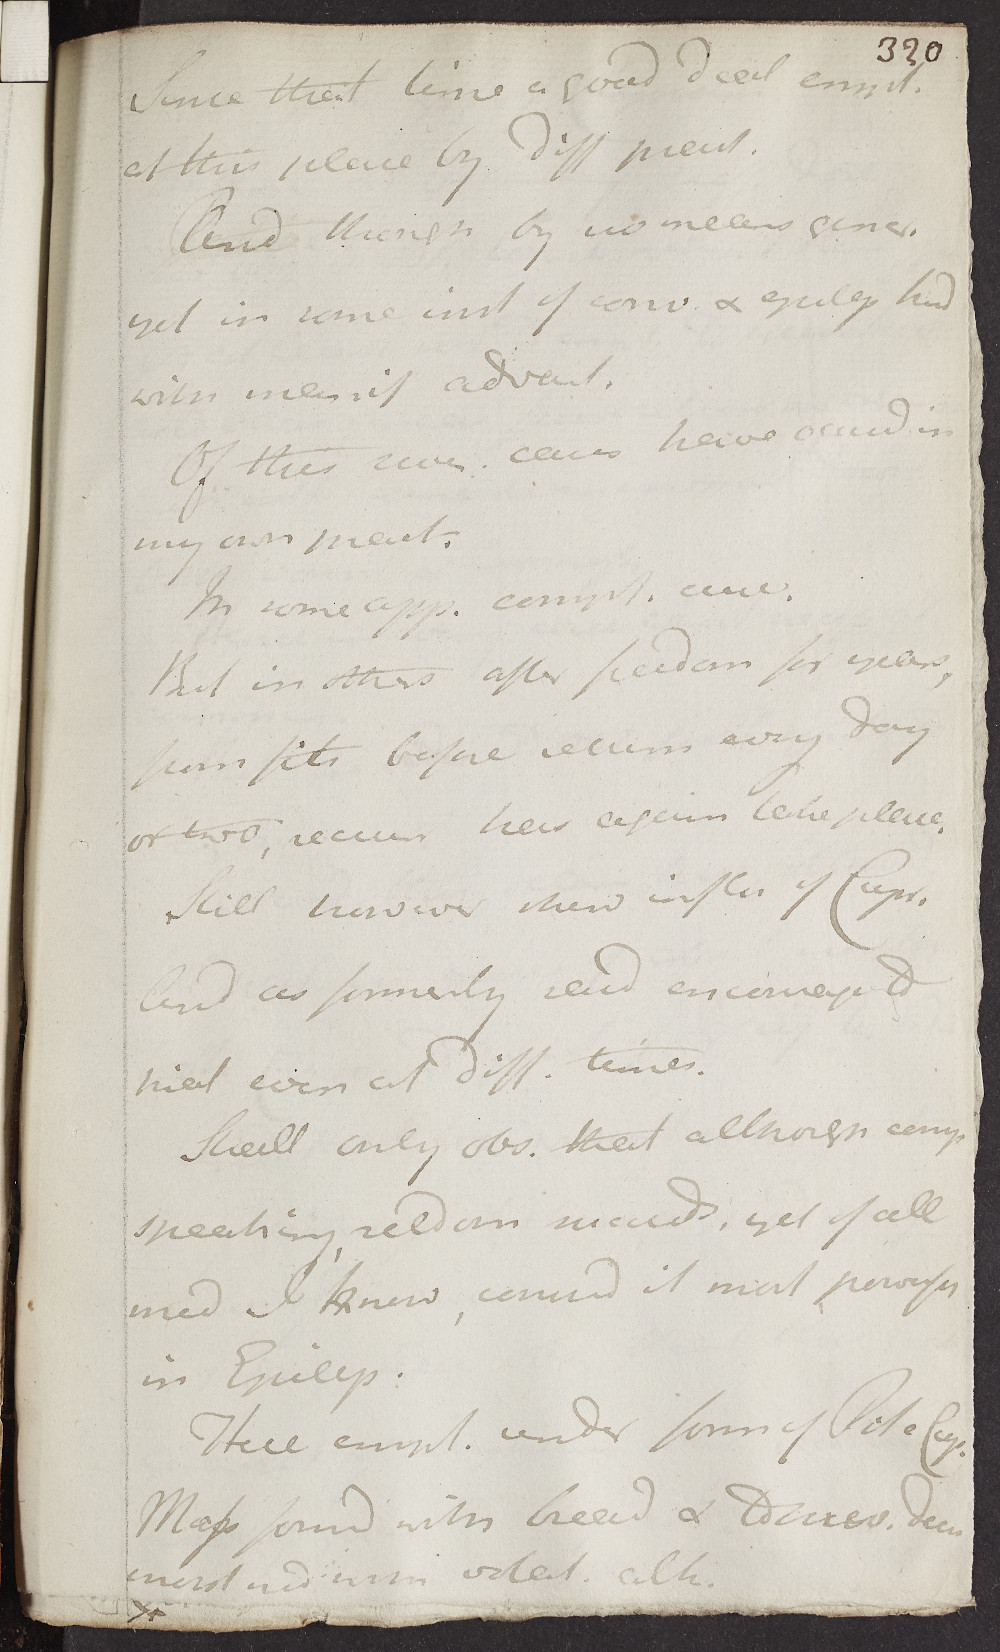 320
Since that time a good deal empt.
at this place by diff pract.
And though by no means gener.
yet in some inst of conv. & epilep had
with manif advant.
Of this sever. cases have occurd in
my own pract.
In some app. compt. cure.
But in others after freedom for years,
from fits before recurrs every day
or two, recurr has again take place.
Still however shew influ of Cupr.
And as formerly said encourag
trial even at diff. times.
Shall only obs. that although comp
speaking, seldom succeeds, yet of all
med I know, consid it most powerful
in Epilep.
Here empt. under form of Pil e Cup.
Mass formd with bread &
volat. alk.